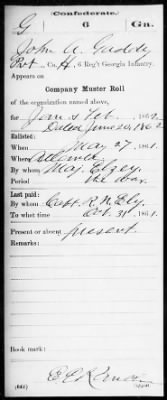 Confederate.
G 6 Ga.
John A. Gaddy
Pvt, Co. H, 6 Reg't Georgia Infantry.
Appears on
Company Muster Roll
of the organization named above,
for Jan & Feb, 1862.
Dated June 20, 1862
Enlisted:
When May 27, 1861.
Where Atlanta
By whom Maj. Elzey
Period the war.
Last paid:
By whom Capt. R. N. Ely.
To what time Oct. 31, 1861.
Present or absent present
Remarks:
Book mark:
(642)